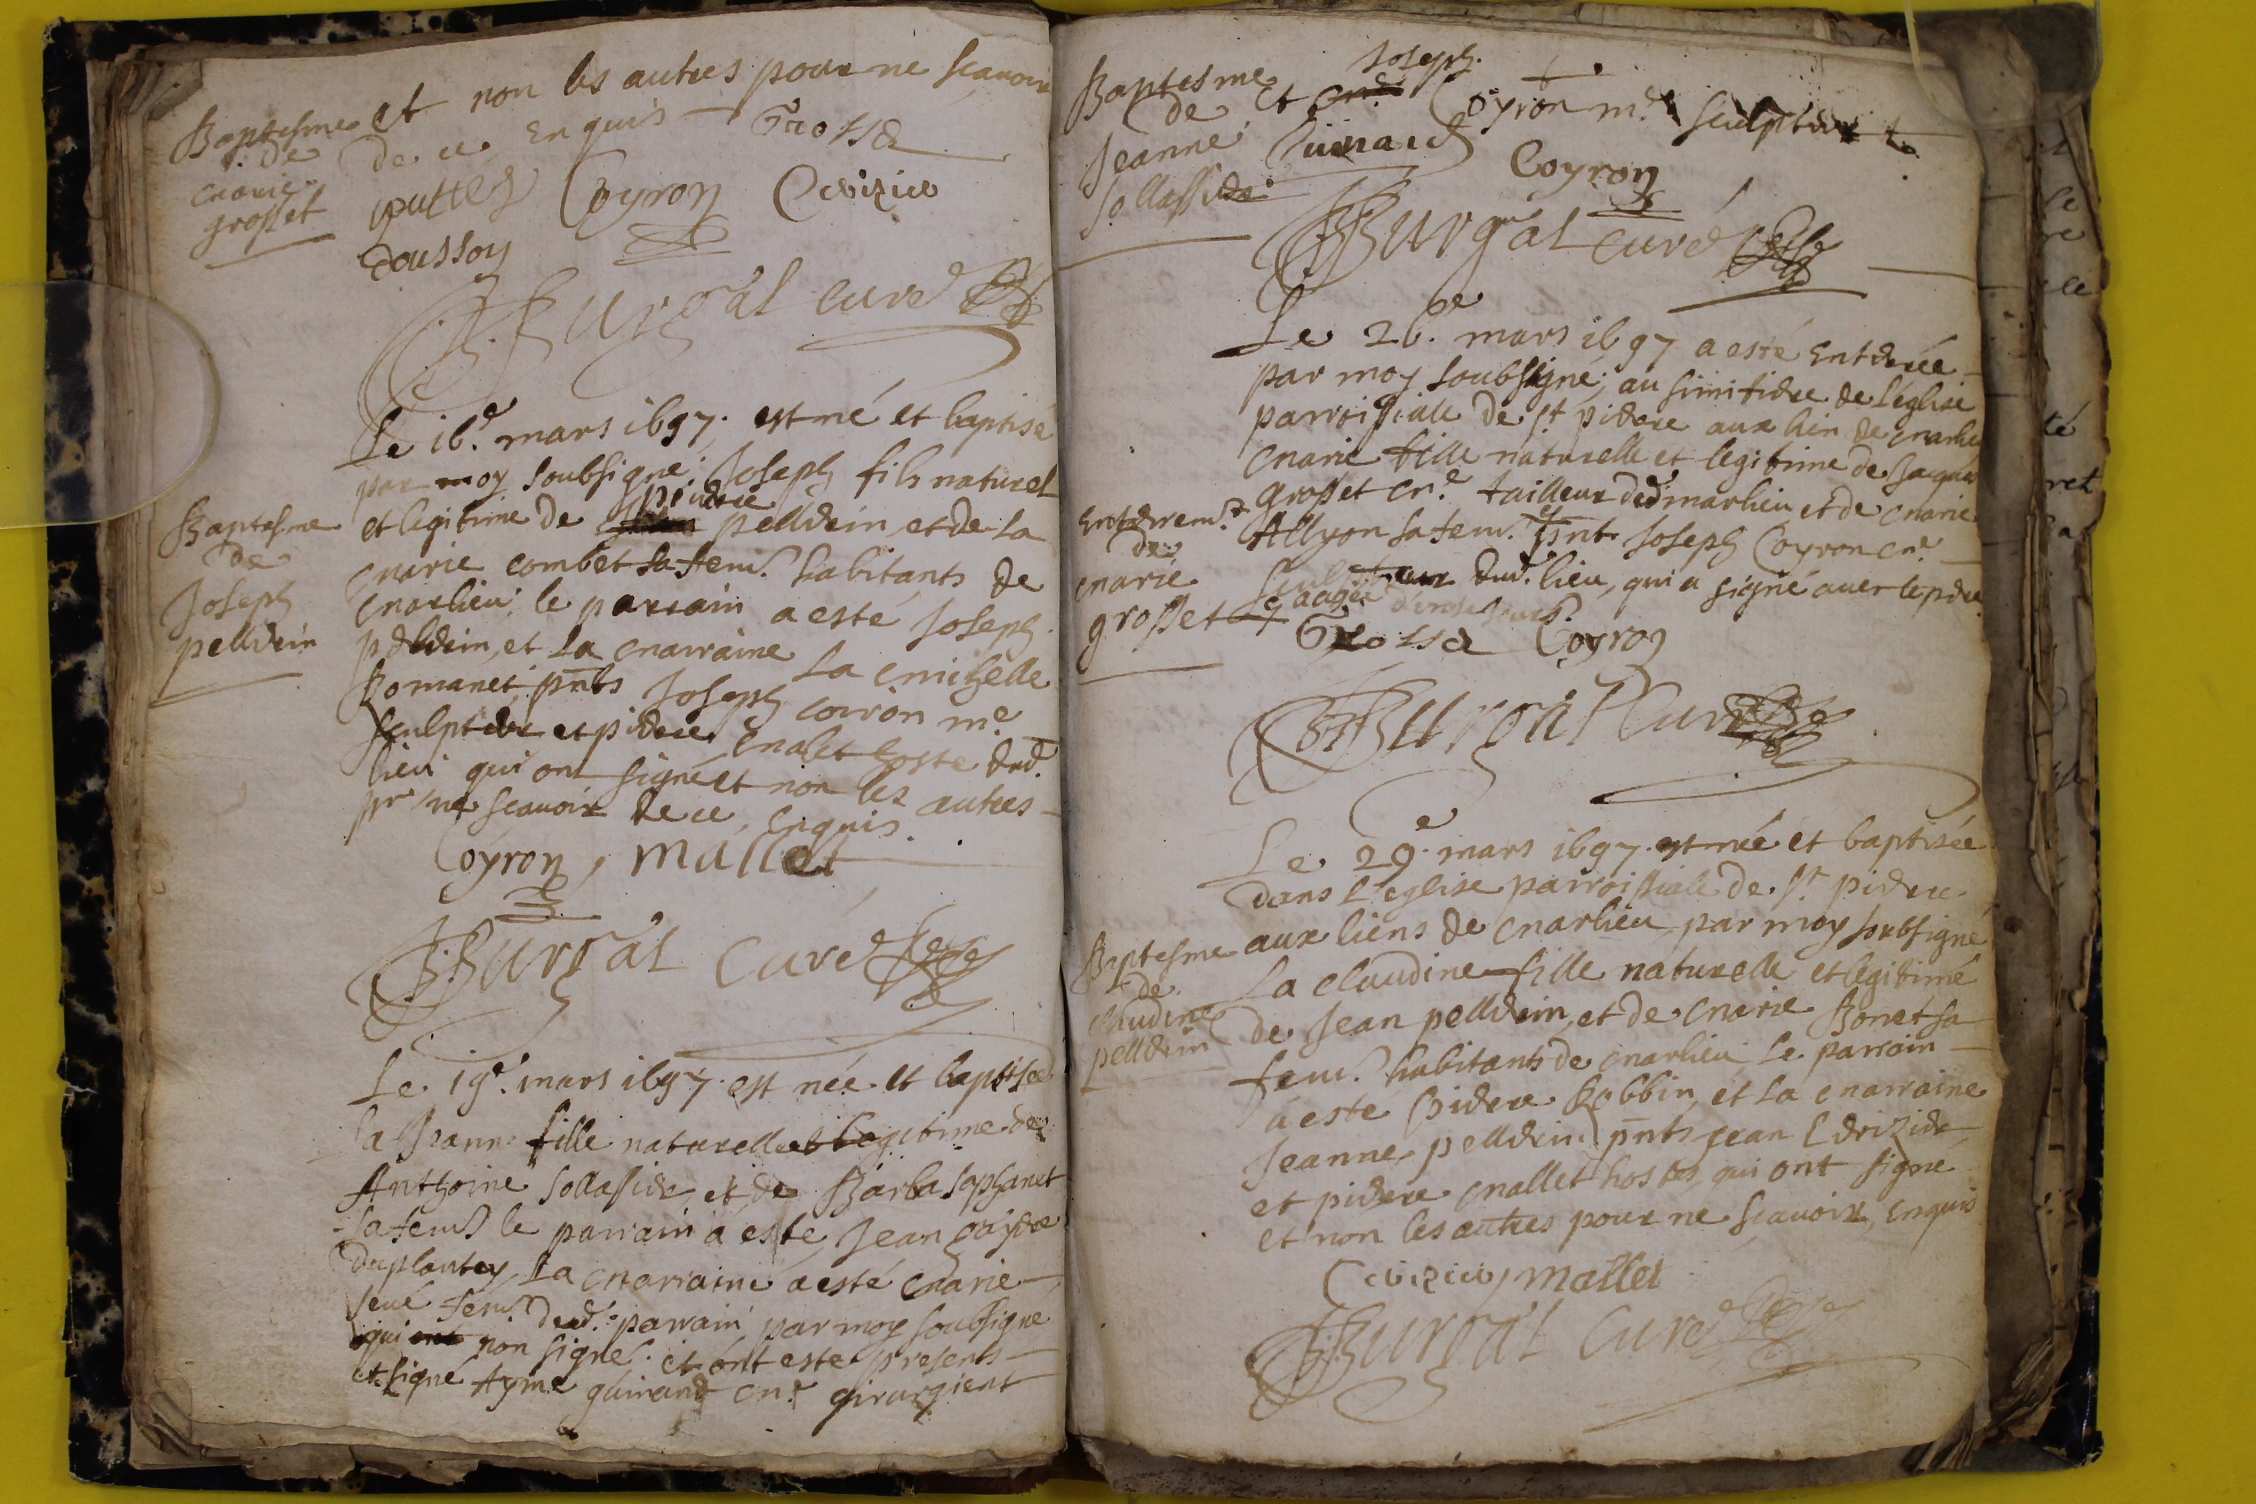 et non les autres pour ne scavoir
Baptesme
de
Marie
grosset
de ce enquis Grossé
puttod Coyron Cerizier
Dousson
BBurgal curé
Le 16e. mars 1697. est né et baptisé
par moy soubsigné Joseph fils naturel
et legitime de pierre pelldrin et de la
Baptesme
de
Joseph
pelldrin
marie combet sa fem. habitants de
marlieu, le parrain a esté Joseph
pelldrin, et La marraine La michelle
Romanet, pnts Joseph coiron me
sculpteur et pierre malet hoste dud.
lieu qui ont signé et non les autres
pr ne scavoir de ce, enquis.
Coyron, mallet
BBurgal Curé
Le 19e. mars 1697. est née et baptisée
la Jeanne fille naturelle et legitime de
Anthoine sollassier et de Barba saphanet
sa fem. le parrain a esté Jean
duplantey, La marraine a esté marie
seué fem. dud. parrain par moy soubsigné
qui ont non signé. et ont esté presents
et signé Ayme guinand me. girurgient
Baptesme
de
Jeanne
sollassier
et Joseph Coyron me. sculpteur
Guinand Coyron
BBurgal curé
Le 26e. mars 1697 a esté Entérée
par moy soubsigné, au simitiére de L'église
parroissiale de st pierre aux lien de marlieu
Marie fille naturelle et legitime de Jacques
grosset me. tailleur de marlieu et de marie
Enterrem.t
de
marie
grosset
Allyon sa fem. pnt Joseph Coyron me.
sculpteur dud. lieu, qui a signé avec le pére
aagée
Grossé Coyron
BBurgal Curé
Le 29e. mars 1697. est née et baptisée
dans L'eglise parroissiale de st pierre
aux liens de marlieu par moy soubsigné
Baptesme
de
claudine
pelldrin
La claudine fille naturelle et legitime
de Jean pelldrin, et de marie Bonet sa
fem. habitants de marlieu Le parrain
a esté pierre Robbin, et La marraine
Jeanne pelldrin, pnts Jean Cerizier
et pierre mallet hostes, qui ont signé
et non les autres pour ne scavoir, enquis
Cerizier, mallet
BBurgal Curé